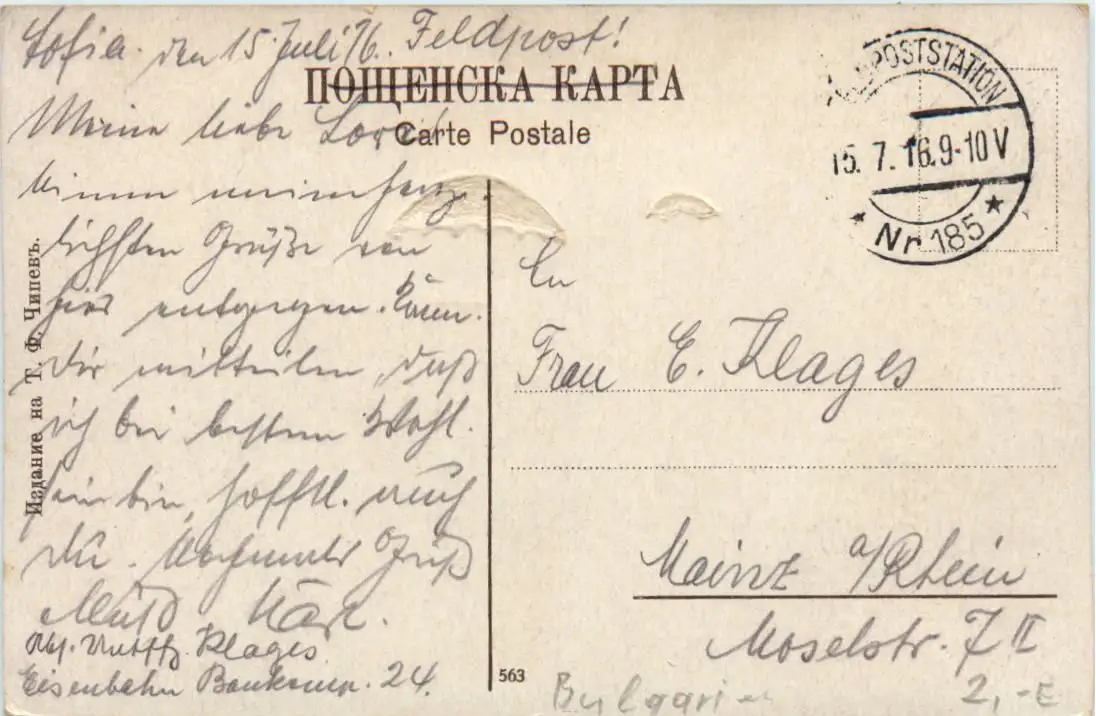 Sofia. den 15 Juli 16. Feldpost!
ПОЩЕНСКА КАРТА
Carte Postale
Meine liebe
meine herz-
lichsten Grüße von
hier entgegen. Kann
Dir mitteilen, daß
ich bei bestem Wohl-
sein bin, hofftl. auch
Du. Nochmals Gruß
Karl.
Klages
Eisenbahn Baukomp. 24.
Издание на Т. Ф. Чипевъ.
POSTSTATION
15. 7. 16. 9-10 V
* Nr 185 *
An
Frau E. Klages
Mainz a/Rhein
Moselstr. 7 II
563
Bulgarien
2,-E